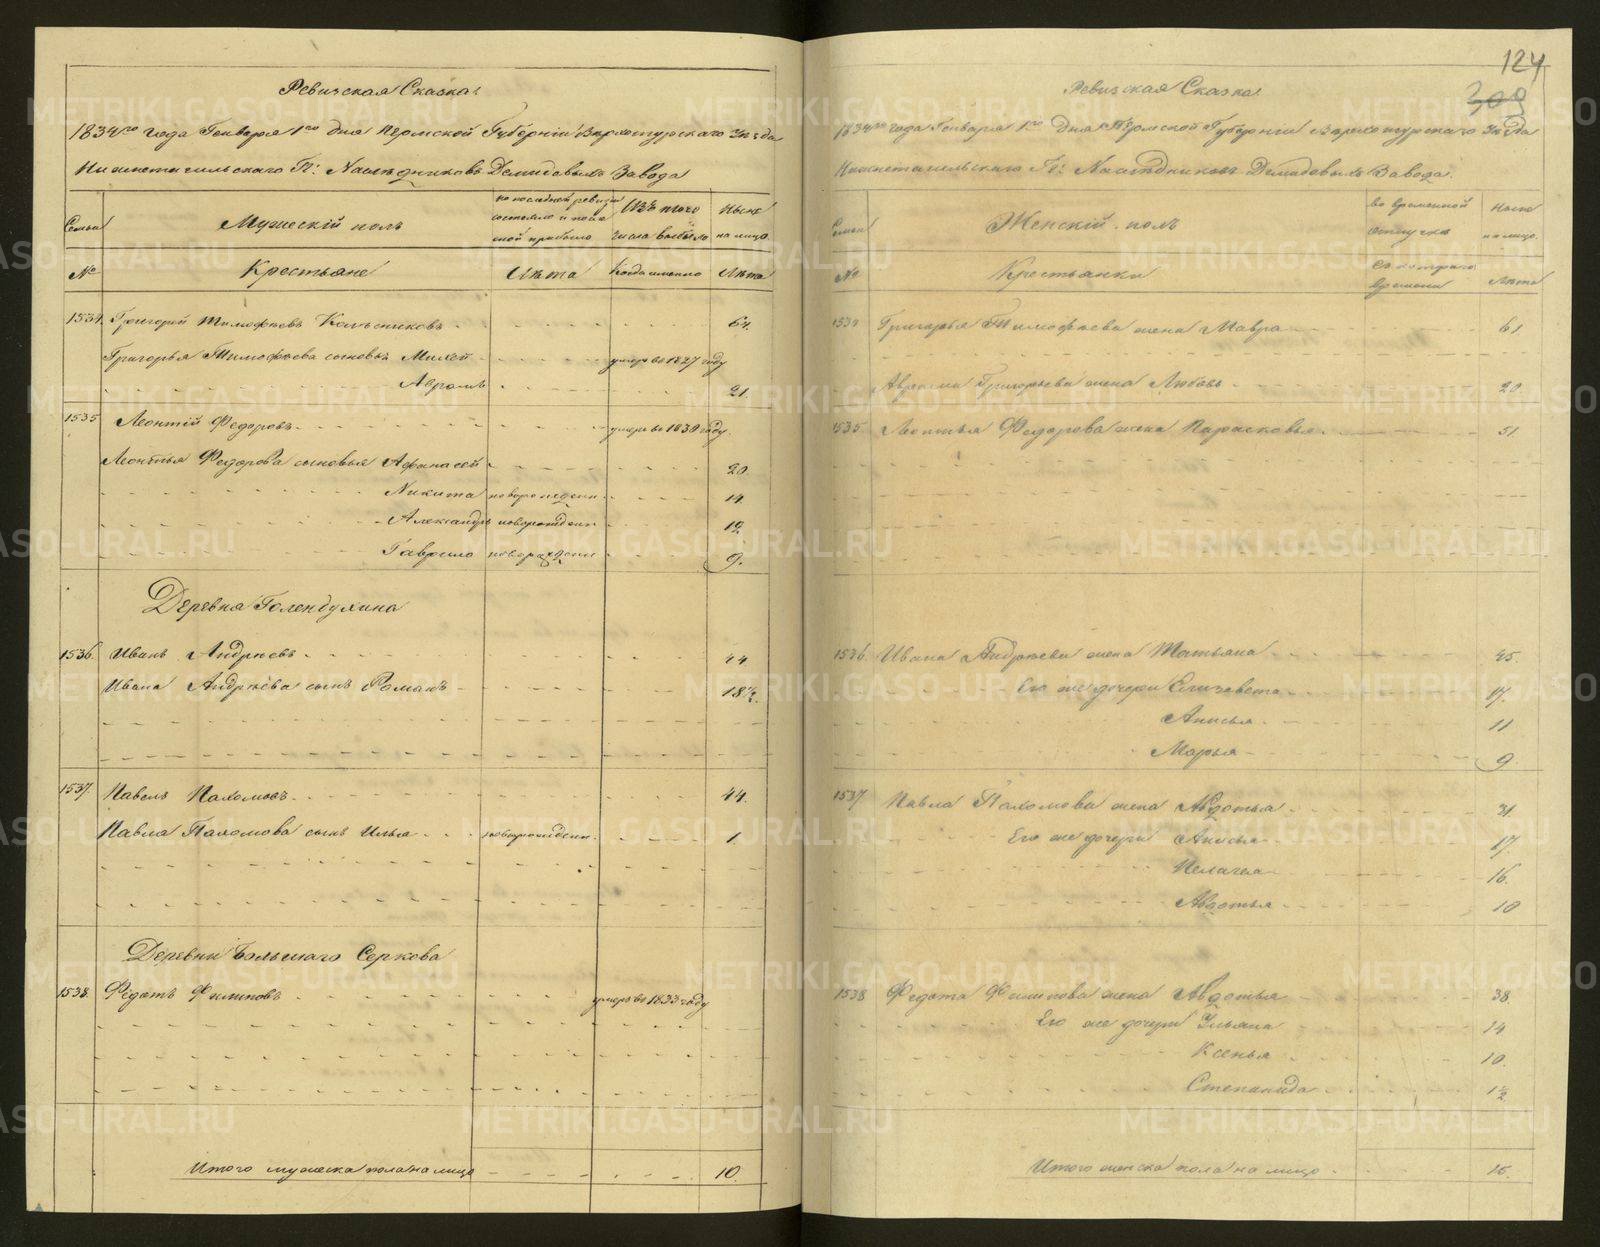 Ревизская Сказка
1834го года Генваря 1го дня Пермской Губернiи Верхотурского Уѣзда
Нижнетагильскаго Гг: Наслѣдниковъ Демидовыхъ Завода
Семьи Мужескiй полъ по последней ревизiи состояло и после оной прибыло Изъ того числа выбыло Ныне на лицо
№ Крестьяне Лѣта Когда именно Лѣта
1534. Григорiй Тимофѣевъ Колесниковъ 64.
Григорья Тимофѣева сыновья Михей умеръ въ 1827 году
Авраамъ 21.
1535 Леонтiй Федоровъ умеръ въ 1830 году.
Леонтья Федорова сыновья Афанасей 20.
Никита новорожден. 14
Александръ новорожден. 12
Гаврило новорожден. 9.
Деревня Голендухина
1536. Иванъ Андрѣевъ 44
Ивана Андрѣева сынъ Романъ 18½.
1537. Павелъ Пахомовъ 44.
Павла Пахомова сынъ Илья новорожден. 1
Деревни Большаго Серкова
1538. Федотъ Филиповъ умеръ въ 1833 году
Итого мужеска пола на лицо 10.
124
300
Ревизская Сказка
1834го года Генваря 1го Дня Пермской Губернiи Верхотурскаго Уѣзда
Нижнетагильскаго Гг: Наслѣдниковъ Демидовыхъ Завода.
Семьи Женскiй полъ во временной отлучке Ныне на лицо.
№ Крестьянки Съ котораго времени Лѣта
1534 Григорья Тимофѣева жена Мавра 61.
Авраама Григорьева жена Любовь 20.
1535. Леонтья Федорова жена Парасковья 51
1536. Ивана Андрѣева жена Татьяна 45.
Его же дочери Елизавета 17.
Анисья 11
Марья 9
1537 Павла Пахомова жена Авдотья 31.
Его же дочери Анисья 17.
Пелагея 16.
Авдотья 10
1538 Федота Филипова жена Авдотья 38.
Его же дочери Ульяна 14
Ксенья 10.
Степанида 1½
Итого женска пола на лицо 15.